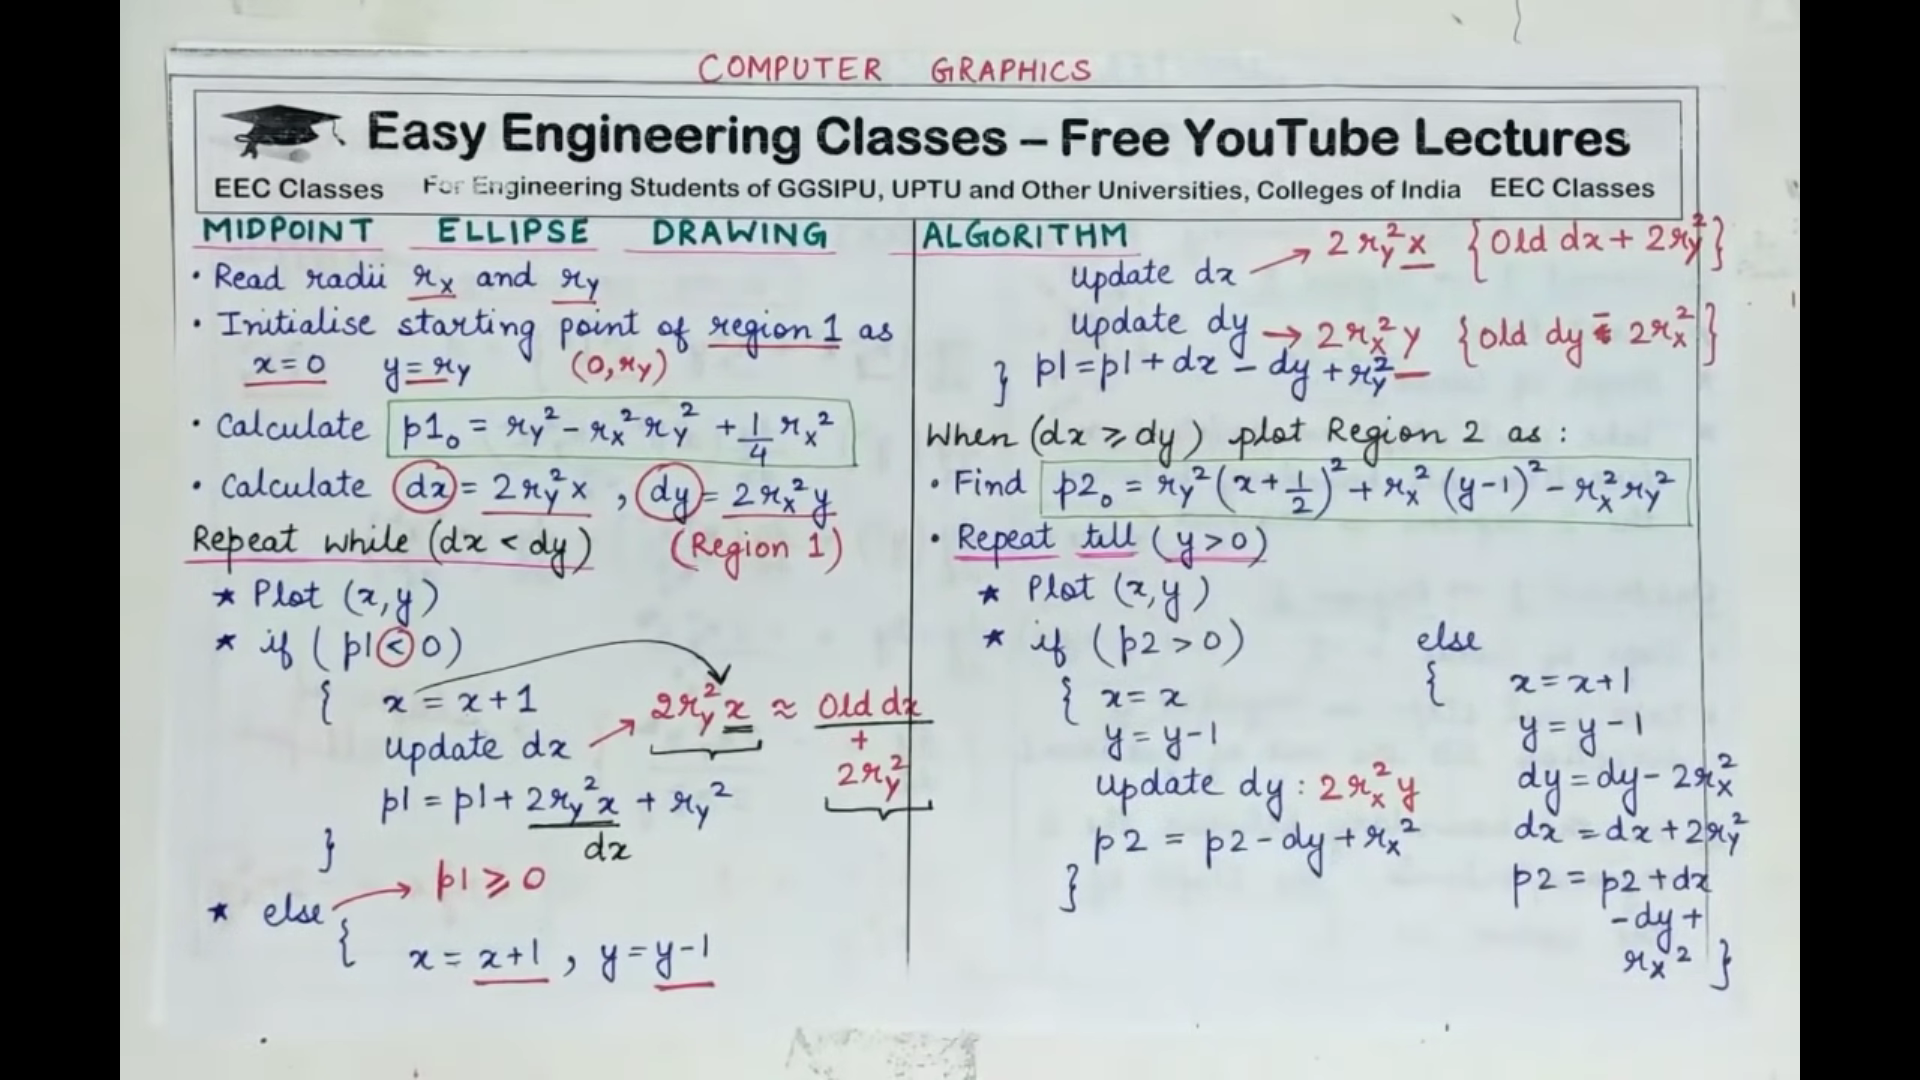 COMPUTER GRAPHICS
Easy Engineering Classes – Free YouTube Lectures
EEC Classes For Engineering Students of GGSIPU, UPTU and Other Universities, Colleges of India EEC Classes
MIDPOINT ELLIPSE DRAWING ALGORITHM
• Read radii rx and ry
• Initialise starting point of region 1 as
x=0 y=ry (0,ry)
• Calculate p1₀ = ry² - rx²ry² + 1/4 rx²
• Calculate dx = 2ry²x , dy = 2rx²y
Repeat while (dx < dy) (Region 1)
* Plot (x,y)
* if ( p1 < 0)
{ x = x+1
update dx → 2ry²x ≈ Old dx + 2ry²
p1 = p1 + 2ry²x + ry²
dx
}
* else → p1 ≥ 0
{ x = x+1 , y = y-1
update dx → 2ry²x {Old dx + 2ry²}
update dy → 2rx²y {old dy - 2rx²}
} p1 = p1 + dx - dy + ry²
When (dx ≥ dy) plot Region 2 as :
• Find p2₀ = ry²(x+1/2)² + rx²(y-1)² - rx²ry²
• Repeat till (y>0)
* Plot (x,y)
* if (p2 > 0)
{ x = x
y = y-1
update dy : 2rx²y
p2 = p2 - dy + rx²
}
else
{ x = x+1
y = y-1
dy = dy - 2rx²
dx = dx + 2ry²
p2 = p2 + dx
- dy +
rx² }